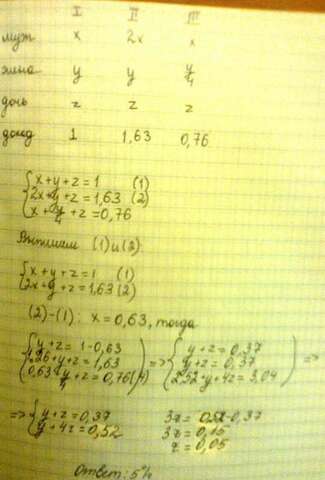 I II III
муж x 2x x
жена y y y/4
дочь z z z
доход 1 1,63 0,76
{x+y+z=1 (1)
2x+y+z=1,63 (2)
x+y/4+z=0,76
Вычтем (1) и (2):
{x+y+z=1 (1)
2x+y+z=1,63 (2)
(2)-(1): x=0,63, тогда
{y+z=1-0,63
1,26+y+z=1,63
0,63+y/4+z=0,76 |·4) => {y+z=0,37
y+z=0,37
2,52+y+4z=3,04 ) =>
=> {y+z=0,37
y+4z=0,52
3z=0,52-0,37
3z=0,15
z=0,05
Ответ: 5%